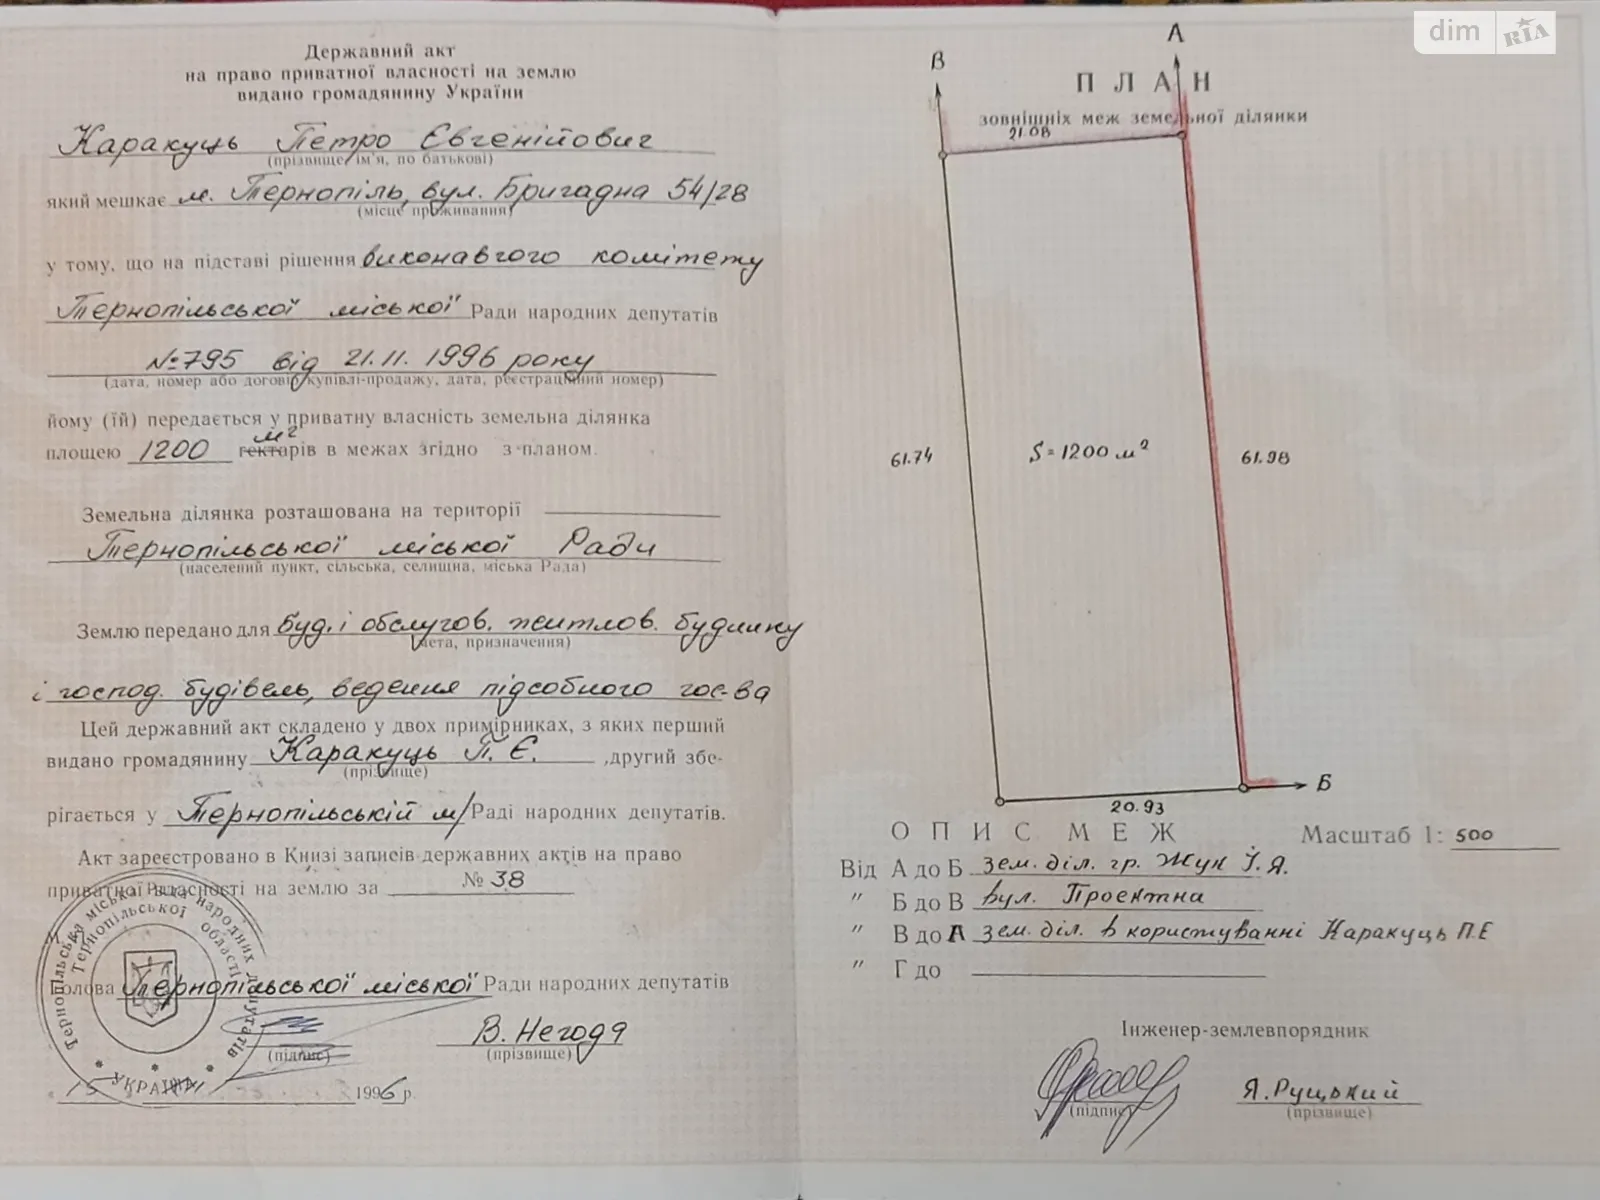 Державний акт
на право приватної власності на землю
видано громадянину України
Каракуць Петро Євгенійович
(прізвище, ім'я, по батькові)
який мешкає м. Тернопіль, вул. Бригадна 54/28
(місце проживання)
у тому, що на підставі рішення виконавчого комітету
Тернопільської міської Ради народних депутатів
№795 від 21.11.1996 року
(дата, номер або договір купівлі-продажу, дата, реєстраційний номер)
йому (їй) передається у приватну власність земельна ділянка
м²
площею 1200 гектарів в межах згідно з планом.
Земельна ділянка розташована на території
Тернопільської міської Ради
(населений пункт, сільська, селищна, міська Рада)
Землю передано для буд. і обслугов. житлов. будинку
(мета, призначення)
і господ. будівель, ведення підсобного гос-ва
Цей державний акт складено у двох примірниках, з яких перший
видано громадянину Каракуць П. Є. , другий збе-
(прізвище)
рігається у Тернопільській м/Раді народних депутатів.
Акт зареєстровано в Книзі записів державних актів на право
приватної власності на землю за № 38
Тернопільська міська Рада народних депутатів
Тернопільської області
* УКРАЇНА *
Голова Тернопільської міської Ради народних депутатів
В. Негода
(підпис) (прізвище)
15 1996 р.
dim RIA
А
В
ПЛАН
зовнішніх меж земельної ділянки
21.08
61.74
S = 1200 м²
61.98
Б
20.93
ОПИС МЕЖ Масштаб 1: 500
Від А до Б зем. діл. гр. Жук І. Я.
" Б до В вул. Проектна
" В до А зем. діл. в користуванні Каракуць П.Е
" Г до
Інженер-землевпорядник
Я. Руцький
(підпис) (прізвище)